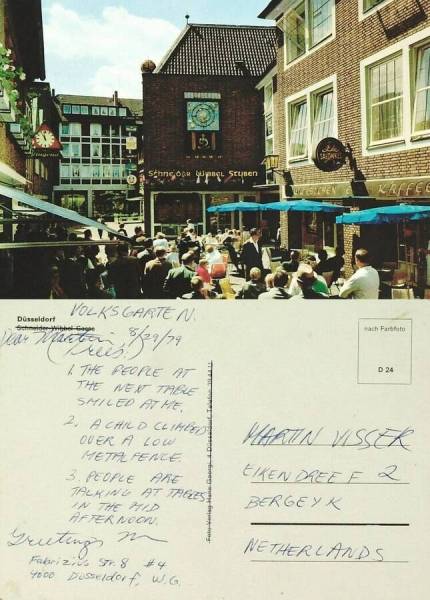 Schneider Wibbel Stuben
KAFFEE
Düsseldorf
Schneider-Wibbel-Gasse
VOLKSGARTEN.
Dear Martin, 8/29/79
(Trees.)
1. THE PEOPLE AT
THE NEXT TABLE
SMILED AT ME.
2. A CHILD CLIMBED
OVER A LOW
METAL FENCE.
3. PEOPLE ARE
TALKING AT TABLES
IN THE MID
AFTERNOON.
Greetings
Fabrizius Str. 8 #4
4000 Dusseldorf, W.G.
nach Farbfoto
D 24
MARTIN VISSER
EIKENDREEF 2
BERGEYK
NETHERLANDS